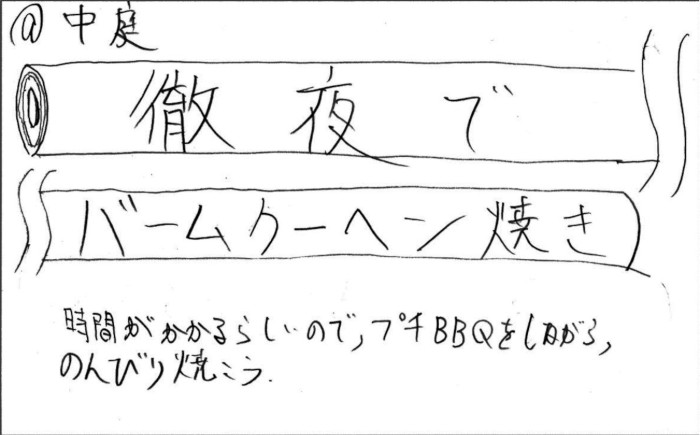 @中庭
徹夜で
バームクーヘン焼き
時間がかかるらしいので,プチBBQをしながら,
のんびり焼こう.